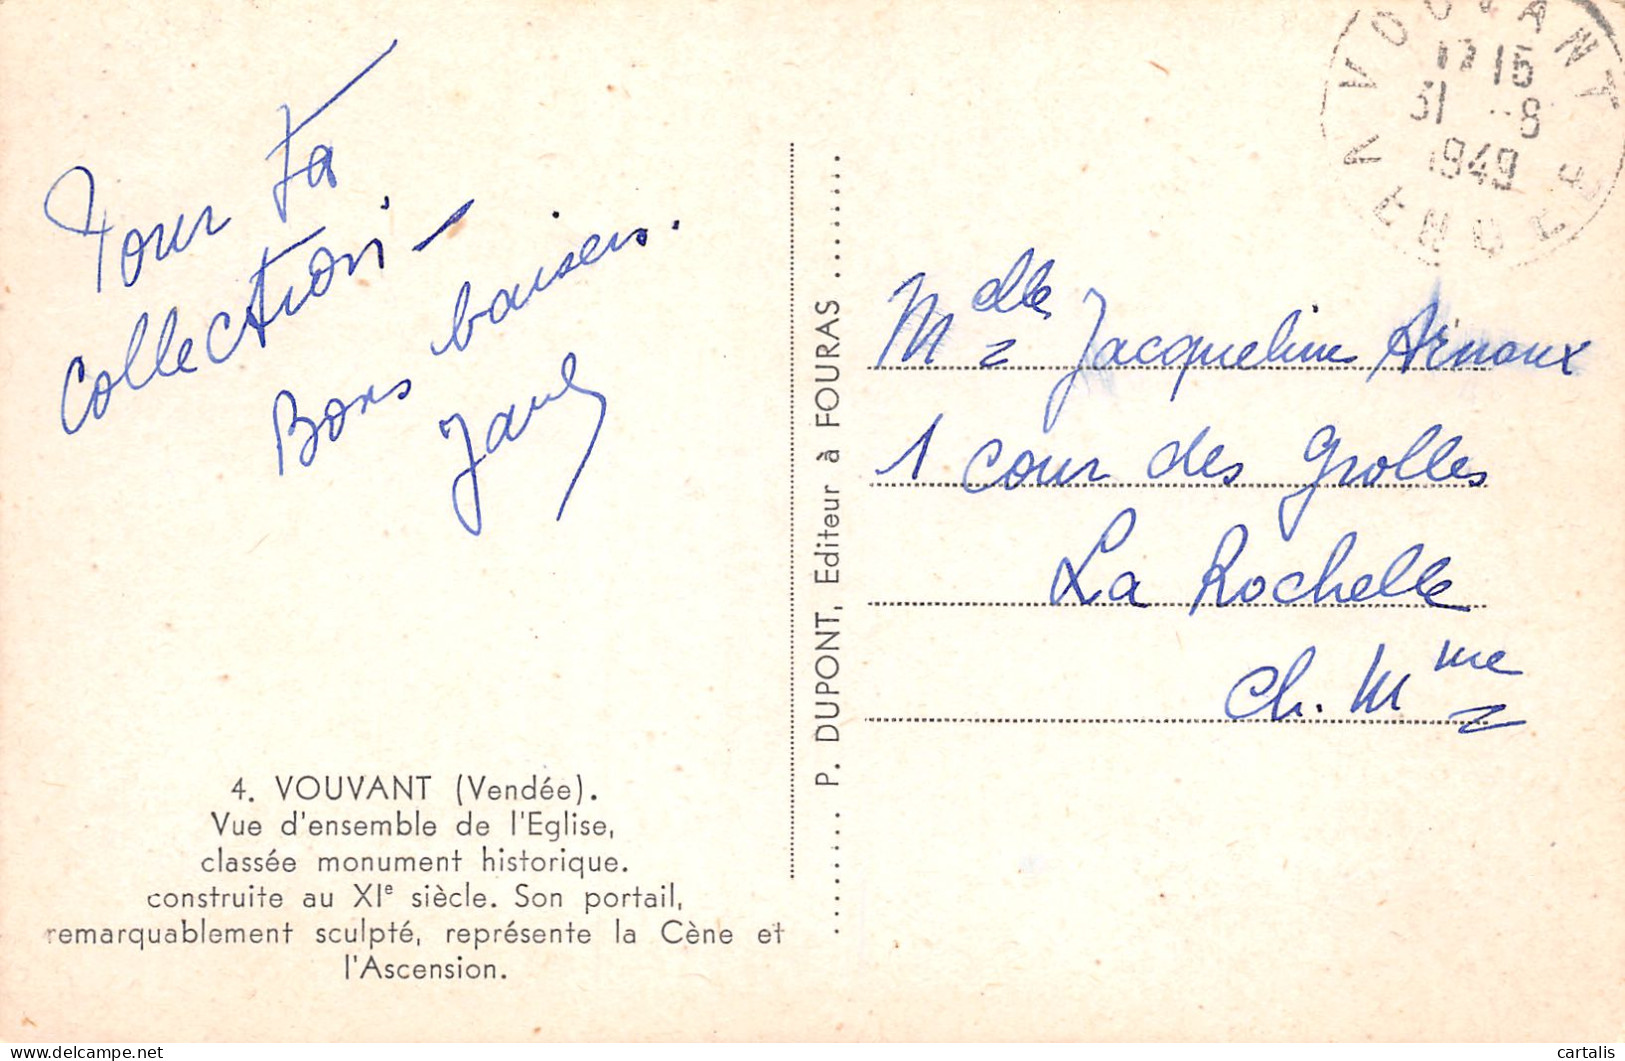 Pour ta
collection -
Bons baisers.
4. VOUVANT (Vendée).
Vue d'ensemble de l'Eglise,
classée monument historique.
construite au XIe siècle. Son portail,
remarquablement sculpté, représente la Cène et
l'Ascension.
P. DUPONT, Editeur à FOURAS
VOUVANT
17 15
31 -8
1949
VENDEE
Melle Jacqueline Arnoux
1 cour des Grolles
La Rochelle
Ch. Mme
cartalis